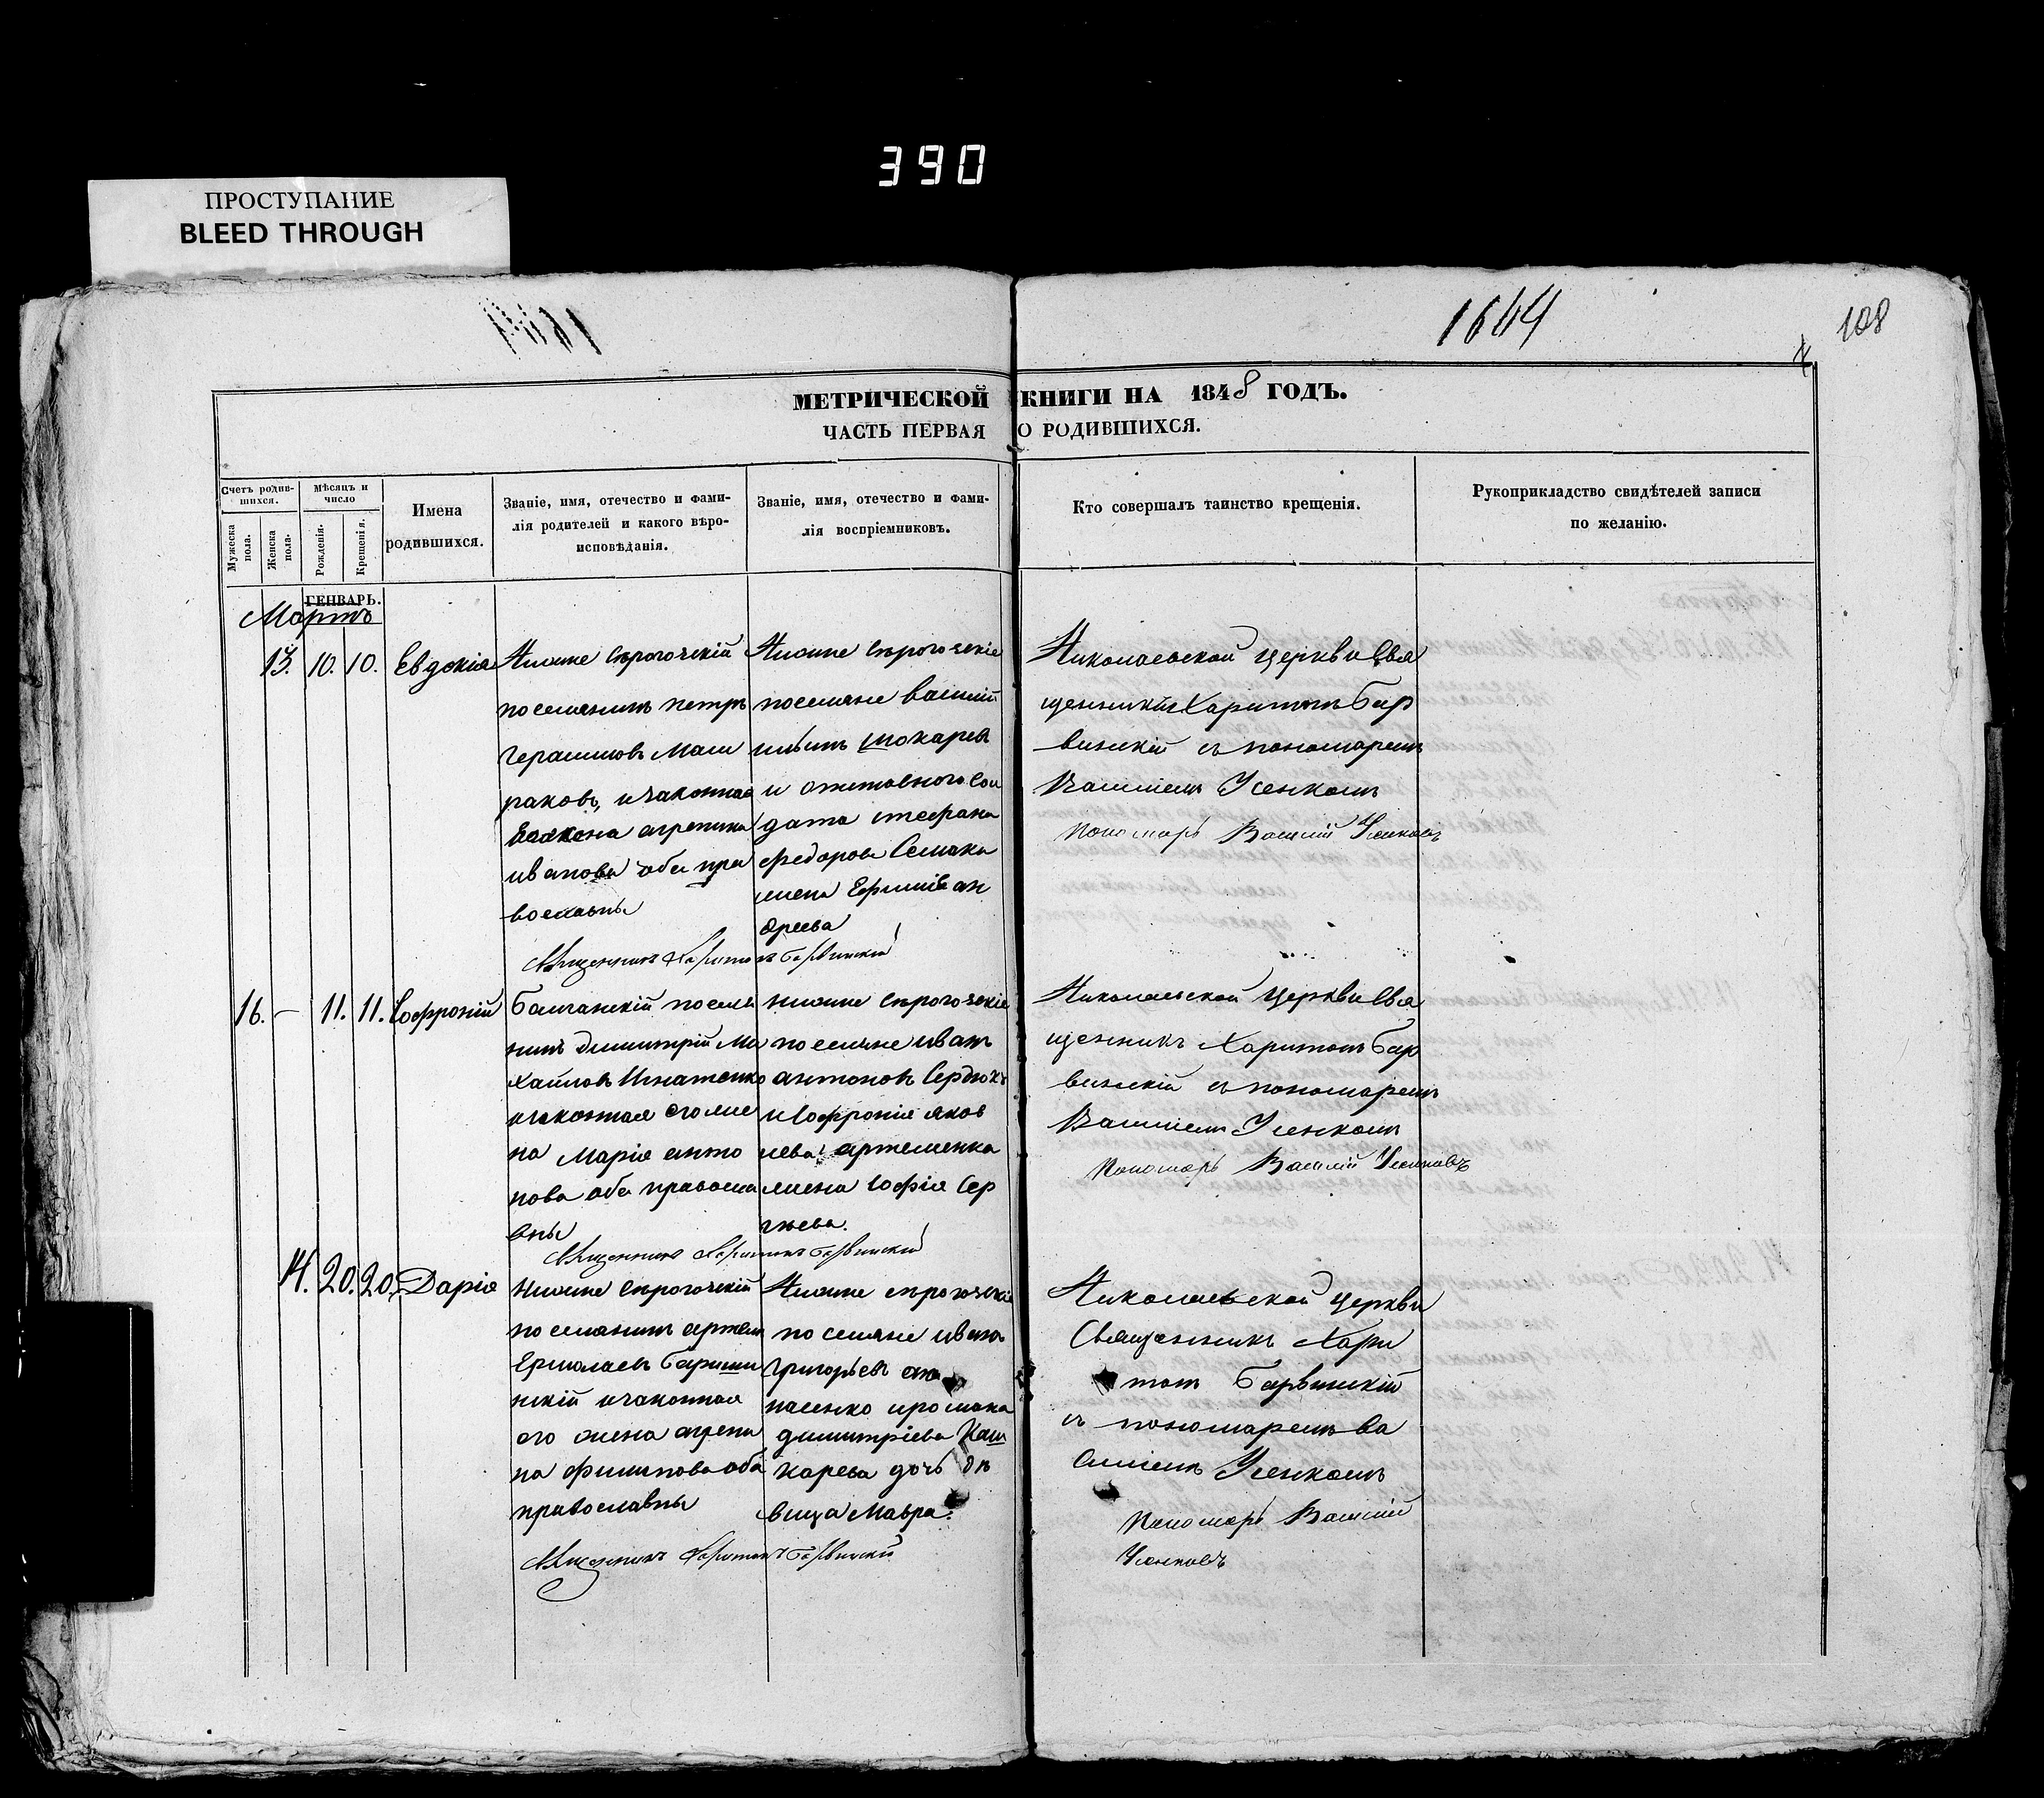 390
ПРОСТУПАНИЕ
BLEED THROUGH
1644
108
МЕТРИЧЕСКОЙ КНИГИ НА 1848 ГОДЪ.
ЧАСТЬ ПЕРВАЯ О РОДИВШИХСЯ.
Счетъ родив-
шихся.
Мужеска
пола.
Женска
пола.
Мѣсяцъ и
число
Рожденія.
Крещенія.
Имена
родившихся.
Званіе, имя, отечество и фами-
лія родителей и какого вѣро-
исповѣданія.
Званіе, имя, отечество и фами-
лія воспріемниковъ.
Кто совершалъ таинство крещенія.
Рукоприкладство свидѣтелей записи
по желанію.
ГЕНВАРЬ.
Мартъ
13. 10. 10. Евдокія
Нижне Сѣрогозскій
поселянинъ петръ
Герасимовъ
раковъ, изаконная
агрепина
иванова оба пра
вославны
Нижне Сѣрогозскіе
поселяне василій
токарев
и отставного Сол
дата стефана
федорова Семака
жена Ефимія ан
дреева
Священникъ Харитонъ Барвинскій
Николаевской Церкви Свя
щенникъ Харитонъ Бар
винскій съ пономаремъ
Василіемъ Усенкомъ
Пономарь Василій Усенковъ
16. — 11. 11. Софроній
Балчанскій поселя
нинъ димитрій Ми
хайловъ Игнатенко
изаконная его же
на Марія анто
нова оба правосла
вны
нижне Сѣрогозскіе
поселяне иванъ
антоновъ Сердюкъ
иСофронія яков
лева артеменка
жена Софія Сер
гѣева.
Священникъ Харитонъ Барвинскій
Николаевской Церкви Свя
щенникъ Харитонъ Бар
винскій съ пономаремъ
Василіемъ Усенкомъ
Пономарь Василій Усенковъ
14. 20. 20. Дарія
Нижне Сѣрогозскій
поселянинъ артемъ
Ермолаевъ Бариши
нскій изаконная
его жена агрепи
на филипова оба
православны
Нижне сѣрогозскіе
поселяне иванъ
Григорьевъ апа
насенко иромана
димитріева Каш
карева дочь дѣ
вица Мавра.
Священникъ Харитонъ Барвинскій
Николаевской церкви
Священникъ Хари
тонъ Барвинскій
съ пономаремъ Ва
силіемъ Усенкомъ
Пономарь Василій
Усенковъ